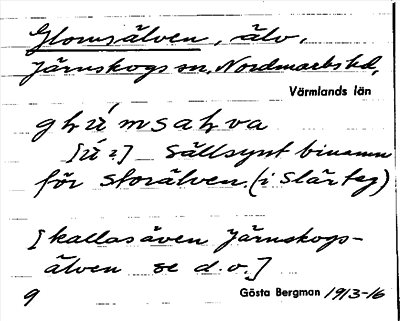 Glomsälven, älv.
Järnskogs sn, Nordmarks hd,
Värmlands län
[ú 2] Sällsynt binamn
för Storälven. (i Slärteg)
[kallas även Järnskogs-
älven se d.o.]
9 Gösta Bergman 1913-16